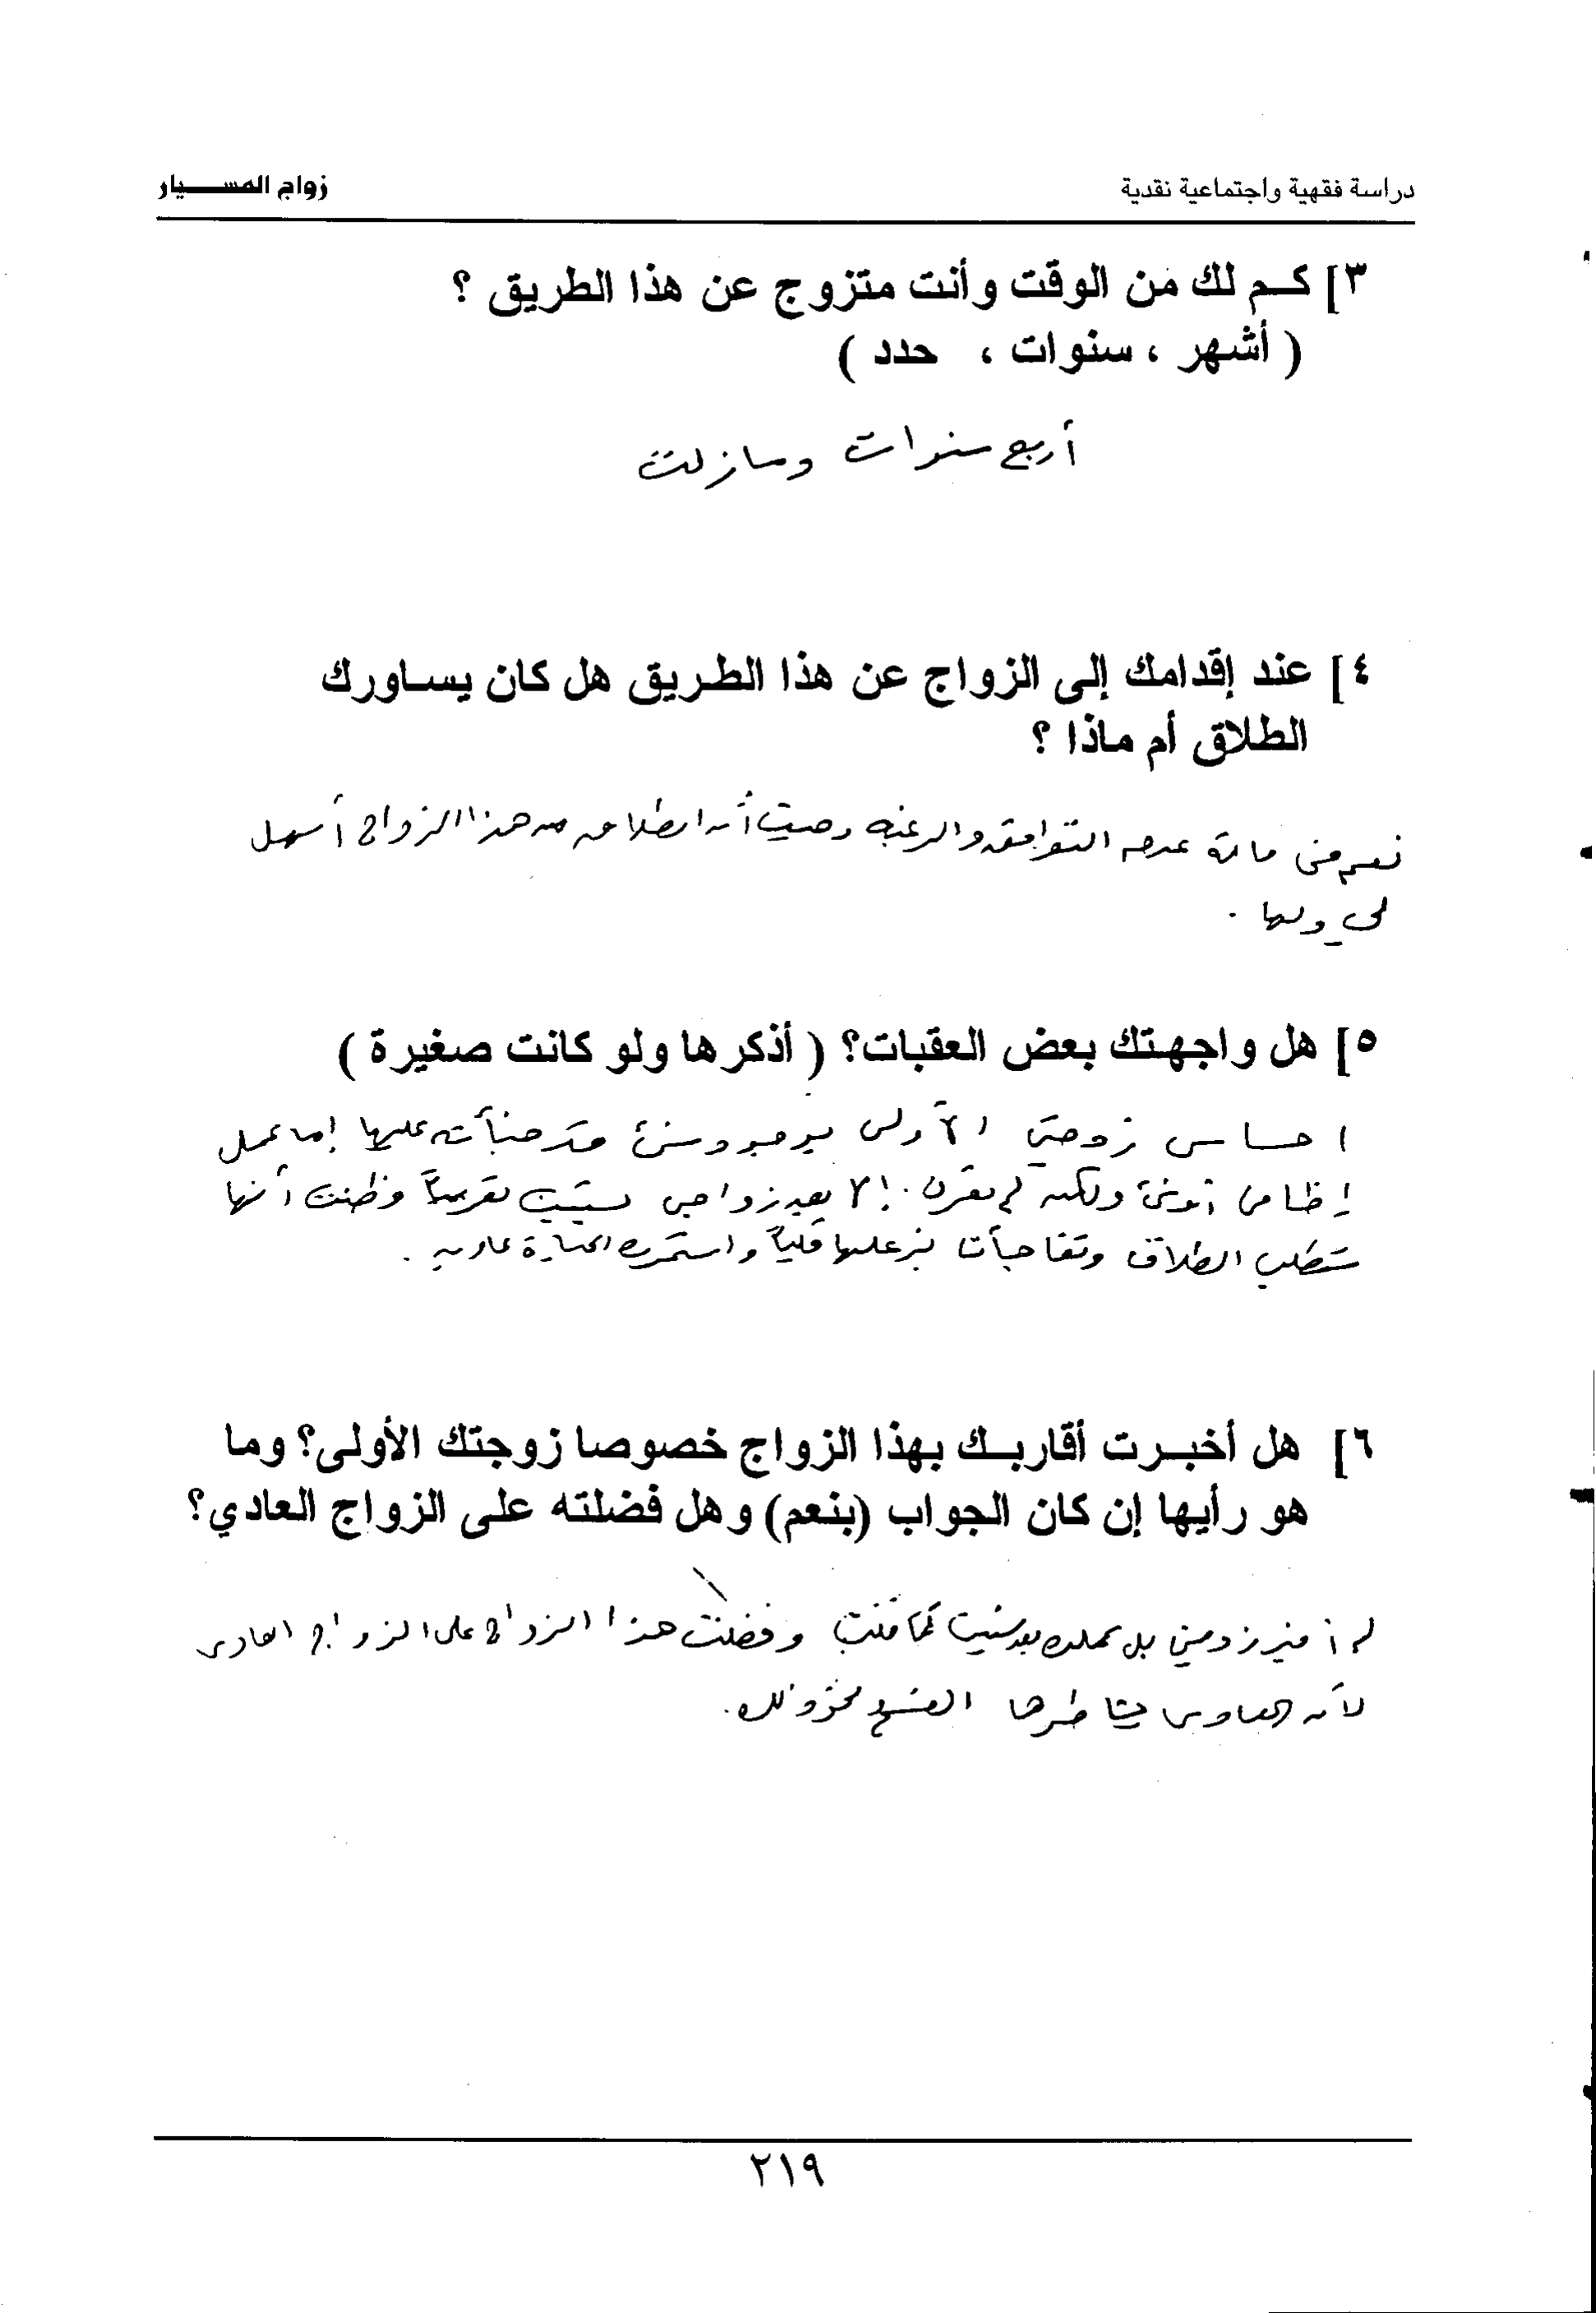 دراسة فقهية واجتماعية نقدية
زواج المسيار
٣] كم لك من الوقت وأنت متزوج عن هذا الطريق ؟
( أشهر ، سنوات ، حدد )
أربع سنوات ومازلت
٤] عند إقدامك إلى الزواج عن هذا الطريق هل كان يساورك
الطلاق أم ماذا ؟
نعم متى ماتم عدم التوافق والرغبة وحيث أن الطلاق من هذا الزواج أسهل
لي ولها .
٥] هل واجهتك بعض العقبات؟ ( أذكرها ولو كانت صغيرة )
احساس زوجتي الأولى بوجود شئ عليها إما عمل
إضافي أو شئ ولكن لم تعرف إلا بعد زواجي بسنتين تقريباً وظننت أنها
ستطلب الطلاق وتفاجأت بزعلها قليلاً واستمرت الحياة عادية .
٦] هل أخبرت أقاربك بهذا الزواج خصوصا زوجتك الأولى؟ وما
هو رأيها إن كان الجواب (بنعم) وهل فضلته على الزواج العادي؟
لم أخبر زوجتي بل علمت بعد سنتين كما قلت وفضلت هذا الزواج على الزواج العادي
لأن العادي يشاطرها
٢١٩